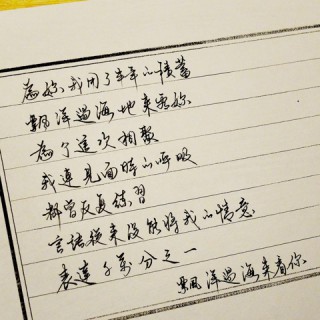 為妳我用了半年的積蓄
飄洋過海地來看妳
為了這次相聚
我連見面時的呼吸
都曾反复練習
言語從來沒能將我的情意
表達千萬分之一
飄洋過海来看你。